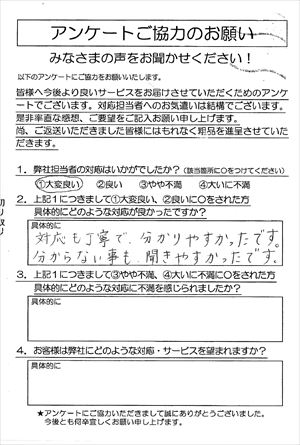 アンケートご協力のお願い
みなさまの声をお聞かせください！
以下のアンケートにご協力をお願いいたします。
皆様へ今後より良いサービスをお届けさせていただくためのアンケ
ートでございます。対応担当者へのお気遣いは結構でございます。
是非率直な感想、ご要望をご記入お願い申し上げます。
尚、ご返送いただきました皆様にはもれなく粗品を進呈させていた
だきます。
1．弊社担当者の対応はいかがでしたか？（該当箇所に○をつけてください）
①大変良い ②良い ③やや不満 ④大いに不満
2．上記1につきまして①大変良い、②良いに○をされた方
具体的にどのような対応が良かったですか？
具体的に
対応も丁寧で、分かりやすかったです。
分からない事も、聞きやすかったです。
3．上記1につきまして③やや不満、④大いに不満に○をされた方
具体的にどのような対応に不満を感じられましたか？
具体的に
4．お客様は弊社にどのような対応・サービスを望まれますか？
具体的に
★アンケートにご協力いただきまして誠にありがとうございました。
今後とも何卒宜しくお願い申し上げます。
切り取り